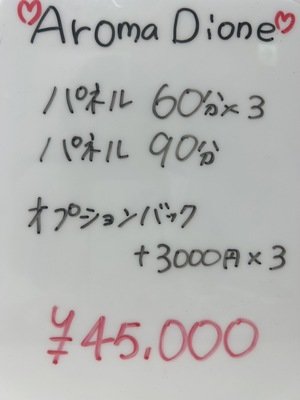 Aroma Dione
パネル 60分×3
パネル 90分
オプションバック
+3000円×3
¥45.000